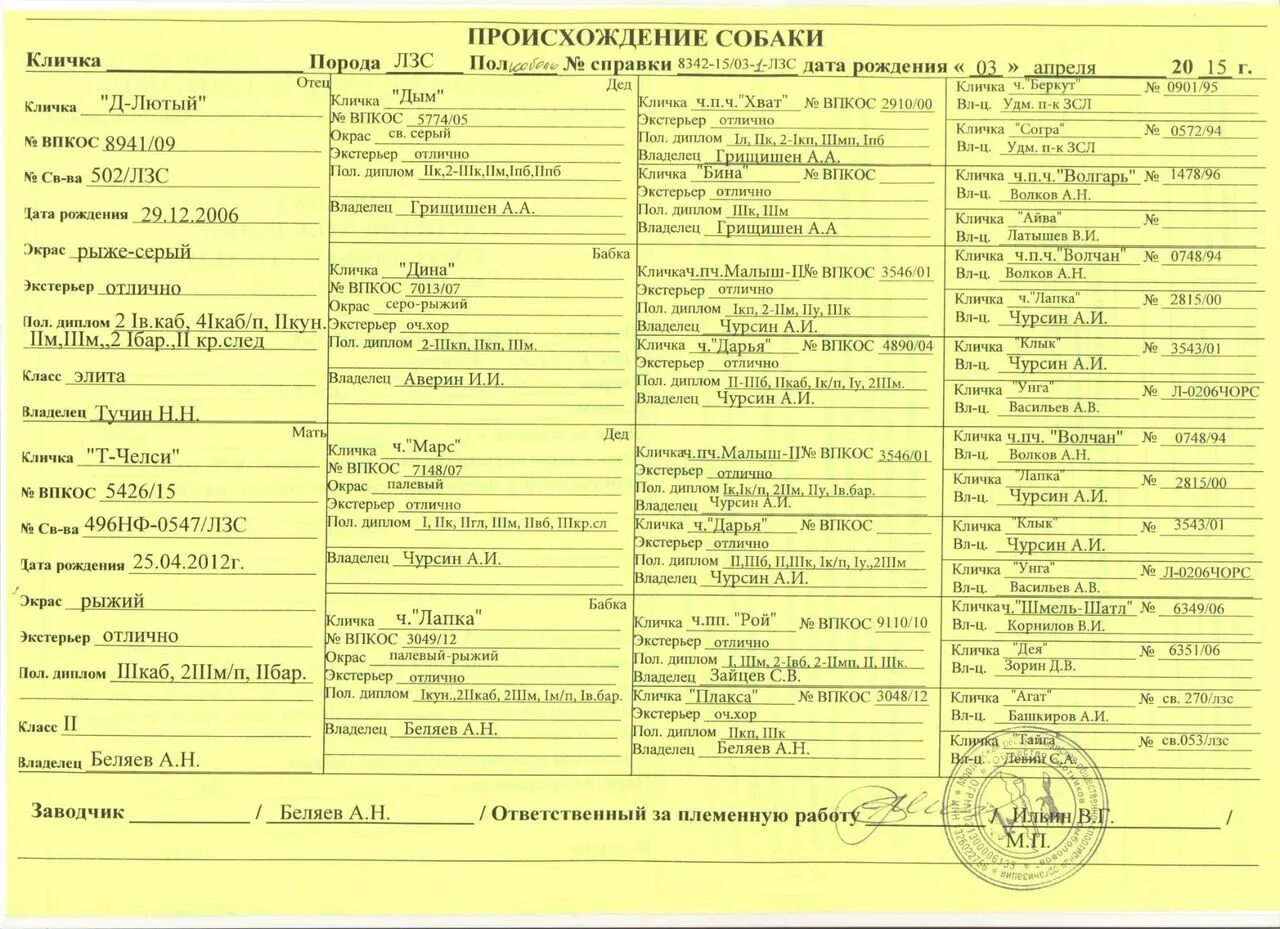 ПРОИСХОЖДЕНИЕ СОБАКИ
Кличка Порода ЛЗС Пол кобель № справки 8342-15/03-1-ЛЗС дата рождения « 03 » апреля 20 15 г.
Отец
Кличка "Д-Лютый"
№ ВПКОС 8941/09
№ Св-ва 502/ЛЗС
Дата рождения 29.12.2006
Экрас рыже-серый
Экстерьер отлично
Пол. диплом 2 Iв.каб, 4Iкаб/п, IIкун.
IIм,IIIм,,2 Iбар.,II кр.след
Класс элита
Владелец Тучин Н.Н.
Мать
Кличка "Т-Челси"
№ ВПКОС 5426/15
№ Св-ва 496НФ-0547/ЛЗС
Дата рождения 25.04.2012г.
Экрас рыжий
Экстерьер отлично
Пол. диплом IIIкаб, 2IIIм/п, IIбар.
Класс II
Владелец Беляев А.Н.
Дед
Кличка "Дым"
№ ВПКОС 5774/05
Окрас св. серый
Экстерьер отлично
Пол. диплом IIк,2-IIIк,IIм,Iпб,IIпб
Владелец Грищишен А.А.
Бабка
Кличка "Дина"
№ ВПКОС 7013/07
Окрас серо-рыжий
Экстерьер оч.хор
Пол. диплом 2-IIIкп, IIкп, IIIм.
Владелец Аверин И.И.
Дед
Кличка ч."Марс"
№ ВПКОС 7148/07
Окрас палевый
Экстерьер отлично
Пол. диплом I, IIк, IIгл, IIIм, IIвб, IIIкр.сл
Владелец Чурсин А.И.
Бабка
Кличка ч."Лапка"
№ ВПКОС 3049/12
Окрас палевый-рыжий
Экстерьер отлично
Пол. диплом Iкун.,2IIкаб, 2IIIм, Iм/п, Iв.бар.
Владелец Беляев А.Н.
Кличка ч.п.ч."Хват" № ВПКОС 2910/00
Экстерьер отлично
Пол. диплом Iл, IIк, 2-Iкп, IIIмп, Iпб
Владелец Грищишен А.А.
Кличка "Бина" № ВПКОС
Экстерьер отлично
Пол. диплом IIIк, IIIм
Владелец Грищишен А.А
Кличка ч.пч.Малыш-II № ВПКОС 3546/01
Экстерьер отлично
Пол. диплом Iкп, 2-IIм, IIу, IIIк
Владелец Чурсин А.И.
Кличка ч."Дарья" № ВПКОС 4890/04
Экстерьер отлично
Пол. диплом II-IIIб, IIкаб, Iк/п, Iу, 2IIIм.
Владелец Чурсин А.И.
Кличка ч.пч.Малыш-II № ВПКОС 3546/01
Экстерьер отлично
Пол. диплом Iк,Iк/п, 2IIм, IIу, Iв.бар.
Владелец Чурсин А.И.
Кличка ч."Дарья" № ВПКОС
Экстерьер отлично
Пол. диплом II,IIIб, II,IIIк, Iк/п, Iу.,2IIIм
Владелец Чурсин А.И.
Кличка ч.пп. "Рой" № ВПКОС 9110/10
Экстерьер отлично
Пол. диплом I, IIIм, 2-Iвб, 2-IIмп, II, IIIк.
Владелец Зайцев С.В.
Кличка "Плакса" № ВПКОС 3048/12
Экстерьер оч.хор
Пол. диплом IIкп, IIIк
Владелец Беляев А.Н.
Кличка ч."Беркут" № 0901/95
Вл-ц. Удм. п-к ЗСЛ
Кличка "Согра" № 0572/94
Вл-ц. Удм. п-к ЗСЛ
Кличка ч.п.ч."Волгарь" № 1478/96
Вл-ц. Волков А.Н.
Кличка "Айва" №
Вл-ц. Латышев В.И.
Кличка ч.п.ч."Волчан" № 0748/94
Вл-ц. Волков А.Н.
Кличка ч."Лапка" № 2815/00
Вл-ц. Чурсин А.И.
Кличка "Клык" № 3543/01
Вл-ц. Чурсин А.И.
Кличка "Унга" № Л-0206ЧОРС
Вл-ц. Васильев А.В.
Кличка ч.пч. "Волчан" № 0748/94
Вл-ц. Волков А.Н.
Кличка "Лапка" № 2815/00
Вл-ц. Чурсин А.И.
Кличка "Клык" № 3543/01
Вл-ц. Чурсин А.И.
Кличка "Унга" № Л-0206ЧОРС
Вл-ц. Васильев А.В.
Кличка ч."Шмель-Шатл" № 6349/06
Вл-ц. Корнилов В.И.
Кличка "Дея" № 6351/06
Вл-ц. Зорин Д.В.
Кличка "Агат" № св. 270/лзс
Вл-ц. Башкиров А.И.
Кличка "Тайга" № св.053/лзс
Вл-ц. Левин С,А
Заводчик / Беляев А.Н. / Ответственный за племенную работу / Ильин В.Г. /
М.П.